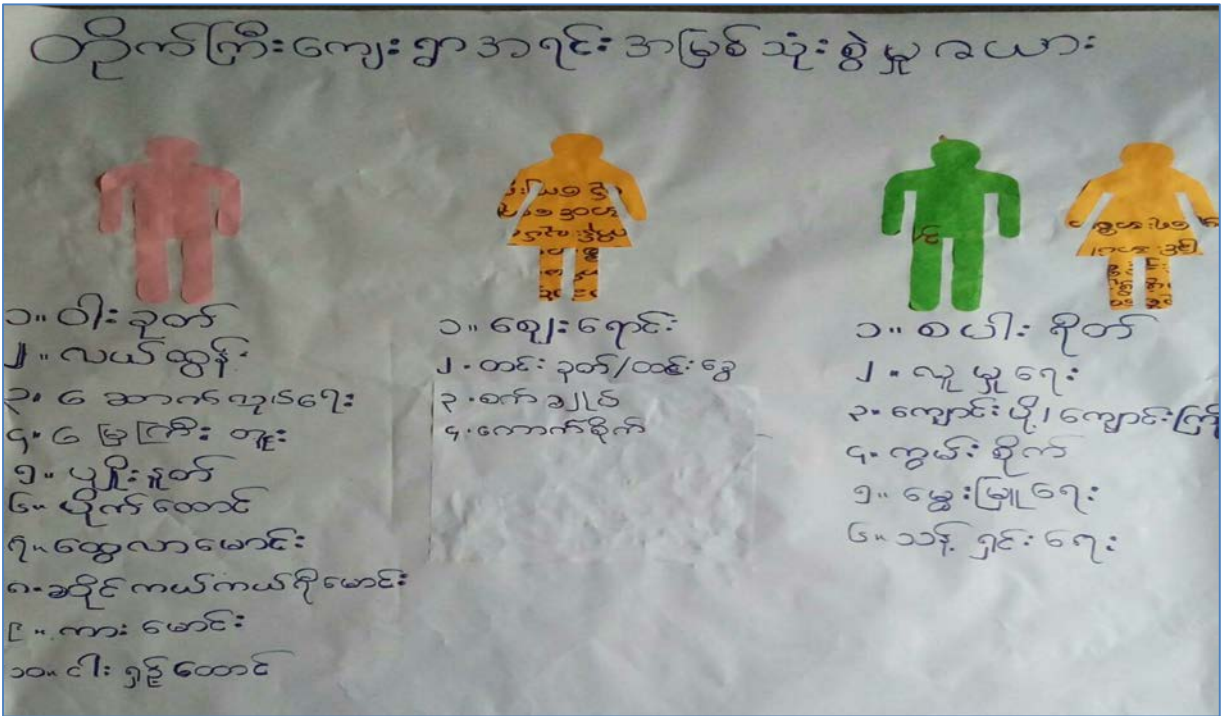 တိုက်ကြီးကျေးရွာအရင်းအမြစ်သုံးစွဲမှုဇယား
၁။ ဝါးခုတ်
၂။ လယ်ထွန်း
၃။ ဆောက်လုပ်ရေး
၄။ မြေကြီးတူး
၅။ ပျိုးနှုတ်
၆။ ပိုက်ထောင်
၇။ ထွေလာမောင်း
၈။ ဆိုင်ကယ်ကယ်ရီမောင်း
၉။ ကားမောင်း
၁၀။ ငါးရှဉ့်ထောင်
၁။ ဈေးရောင်း
၂။ ထင်းခုတ်/ထင်းခွေ
၃။ စက်ချုပ်
၄။ ကောက်စိုက်
၁။ စပါးရိတ်
၂။ လူမှုရေး
၃။ ကျောင်းပို့/ကျောင်းကြို
၄။ ကွမ်းစိုက်
၅။ မွေးမြူရေး
၆။ သန့်ရှင်းရေး